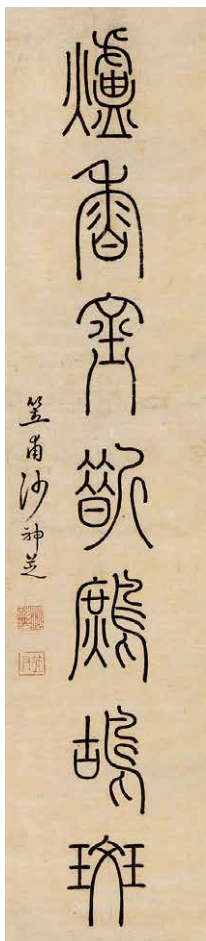 爐香鷓鴣斑
笠甫沙神芝